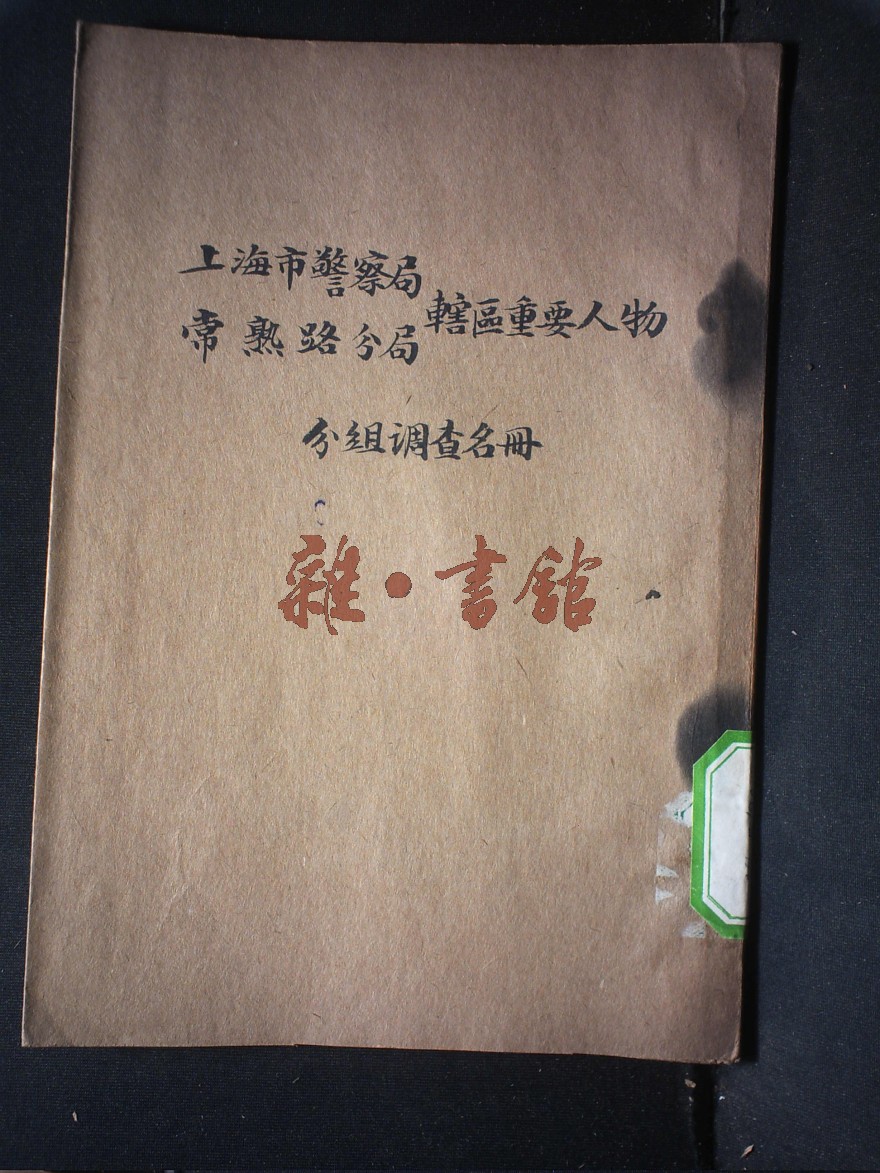 上海市警察局
常熟路分局
轄區重要人物
分组调查名冊
雜·書館